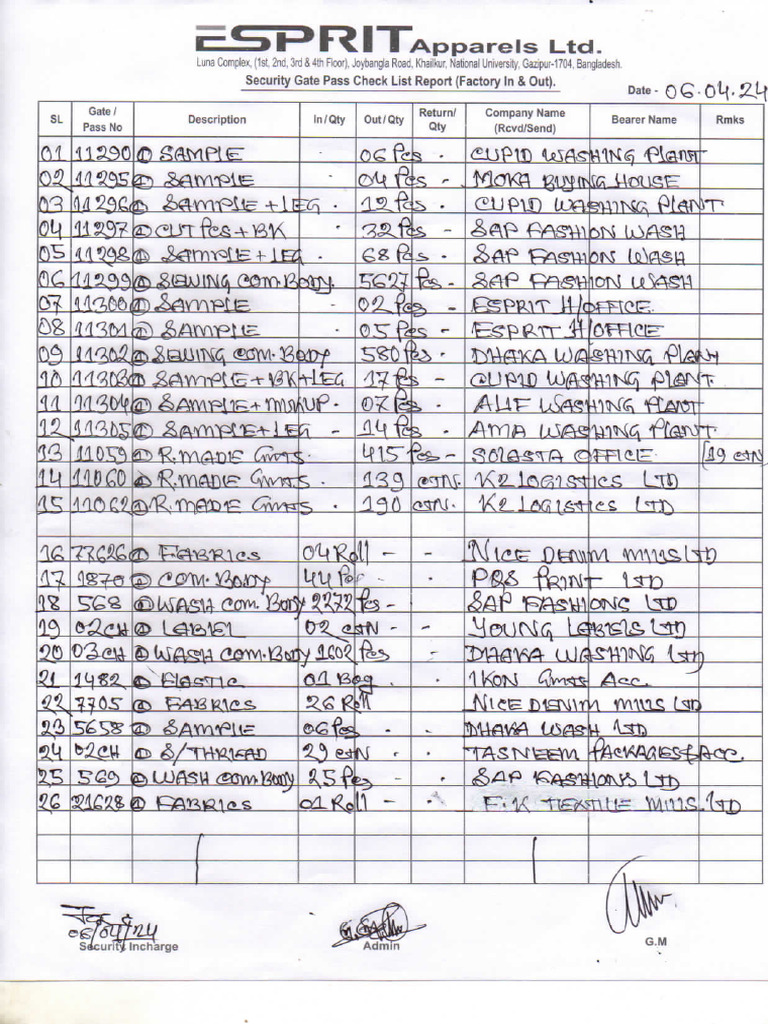 ESPRIT Apparels Ltd.
Luna Complex, (1st, 2nd, 3rd & 4th Floor), Joybangla Road, Khailkur, National University, Gazipur-1704, Bangladesh.
Security Gate Pass Check List Report (Factory In & Out).
Date - 06.04.24
SL Gate / Pass No Description In / Qty Out / Qty Return/ Qty Company Name (Rcvd/Send) Bearer Name Rmks
01 11290 SAMPLE 06 Pcs - CUPID WASHING PLANT
02 11295 SAMPLE 04 Pcs - MOKA BUYING HOUSE
03 11296 SAMPLE + LEG 12 Pcs - CUPID WASHING PLANT
04 11297 CUT Pcs + BK 32 Pcs - SAP FASHION WASH
05 11298 SAMPLE + LEG 68 Pcs - SAP FASHION WASH
06 11299 SEWING COM. BODY 5627 Pcs - SAP FASHION WASH
07 11300 SAMPLE 02 Pcs - ESPRIT H/OFFICE
08 11301 SAMPLE 05 Pcs - ESPRIT H/OFFICE
09 11302 SEWING COM. BODY 580 Pcs - DHAKA WASHING PLANT
10 11303 SAMPLE + BK + LEG 17 Pcs - CUPID WASHING PLANT
11 11304 SAMPLE + 07 Pcs - ALIF WASHING PLANT
12 11305 SAMPLE + LEG - 14 Pcs - AMA WASHING PLANT
13 11059 R.MADE Gmts. 415 Pcs - SOLASTA OFFICE (19 CTN
14 11060 R.MADE Gmts. 139 CTN. K2 LOGISTICS LTD
15 11062 R.MADE Gmts . 190 CTN. K2 LOGISTICS LTD
16 77626 FABRICS 04 Roll - - NICE DENIM MILLS LTD
17 1870 COM. BODY 44 Pcs - PQS PRINT LTD
18 568 WASH COM. BODY 2272 Pcs - SAP FASHIONS LTD
19 02CH LABEL 02 CTN - - YOUNG LABELS LTD
20 03CH WASH COM. BODY 1602 Pcs DHAKA WASHING LTD
21 1482 ELASTIC 01 Bag . IKON Gmts Acc.
22 7705 FABRICS 26 Roll NICE DENIM MILLS LTD
23 5658 SAMPLE 06 Pcs . DHAKA WASH LTD
24 02CH S/THREAD 29 CTN . . TASNEEM PACKAGES & ACC.
25 569 WASH COM BODY 25 Pcs . SAP FASHIONS LTD
26 21628 FABRICS 01 Roll - . F.K TEXTILE MILLS. LTD
06/04/24
Security Incharge Admin G.M